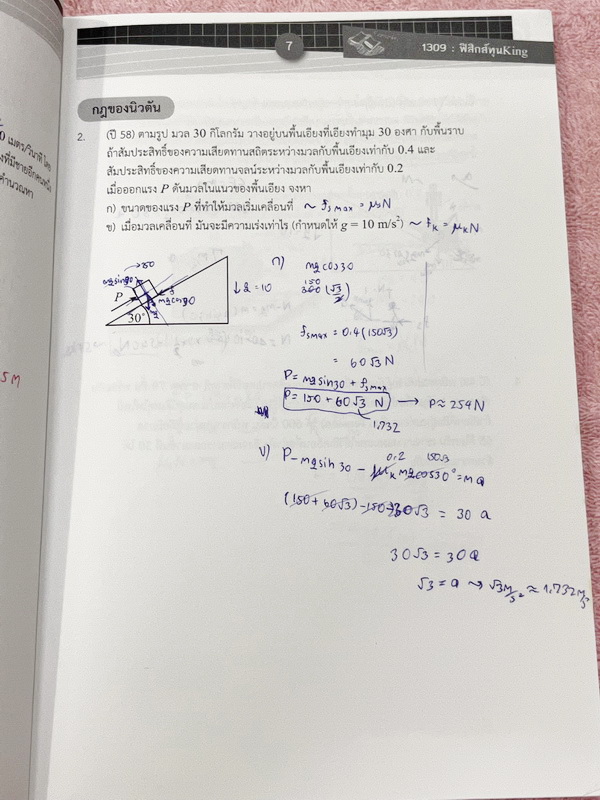 7
1309 : ฟิสิกส์ทุนKing
กฎของนิวตัน
2. (ปี 58) ตามรูป มวล 30 กิโลกรัม วางอยู่บนพื้นเอียงที่เอียงทำมุม 30 องศา กับพื้นราบ
ถ้าสัมประสิทธิ์ของความเสียดทานสถิตระหว่างมวลกับพื้นเอียงเท่ากับ 0.4 และ
สัมประสิทธิ์ของความเสียดทานจลน์ระหว่างมวลกับพื้นเอียงเท่ากับ 0.2
เมื่อออกแรง P ดันมวลในแนวของพื้นเอียง จงหา
ก) ขนาดของแรง P ที่ทำให้มวลเริ่มเคลื่อนที่ ~ fs max = μsN
ข) เมื่อมวลเคลื่อนที่ มันจะมีความเร่งเท่าไร (กำหนดให้ g = 10 m/s²) ~ fk = μkN
P
30°
mg sin30
mg cos30
↓ g = 10
ก) mg cos 30
150
300 (√3/2)
fsmax = 0.4(150√3)
= 60√3 N
P = mg sin30 + fsmax
P = 150 + 60√3 N → P ≈ 254 N
1.732
ข) P - mg sin 30 - μk mg cos30° = ma
0.2 150√3
(150 + 60√3) - 150 - 30√3 = 30 a
30√3 = 30a
√3 = a ~> √3 m/s² ≈ 1.732 m/s²
0 เมตร/วินาที โดย
คำนวณหา
5 M